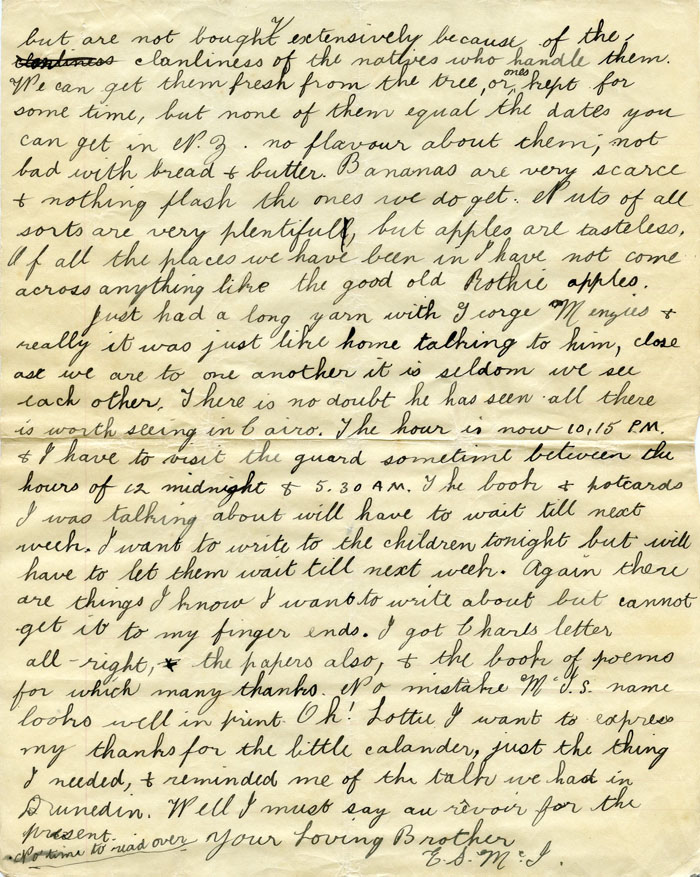 but are not bought extensively because of the
clanliness clanliness of the natives who handle them.
We can get them fresh from the tree, or ones kept for
some time, but none of them equal the dates you
can get in N. Z. no flavour about them; not
bad with bread & butter. Bananas are very scarce
& nothing flash the ones we do get. Nuts of all
sorts are very plentiful, but apples are tasteless.
Of all the places we have been in I have not come
across anything like the good old Rothie apples.
Just had a long yarn with George Menzies &
really it was just like home talking to him, close
as we are to one another it is seldom we see
each other. There is no doubt he has seen all there
is worth seeing in Cairo. The hour is now 10,15 P.M.
& I have to visit the guard sometime between the
hours of 12 midnight & 5.30 A.M. The book & potcards
I was talking about will have to wait till next
week. I want to write to the children tonight but will
have to let them wait till next week. Again there
are things I know I want to write about but cannot
get it to my finger ends. I got Charls letter
all-right, & the papers also, & the book of poems
for which many thanks. No mistake McI.s. name
looks well in print. Oh! Lottie I want to express
my thanks for the little calander, just the thing
I needed, & reminded me of the talk we had in
Drunedin. Well I must say au rêvoir for the
present. Your Loving Brother
No time to read over
E. S. McI.